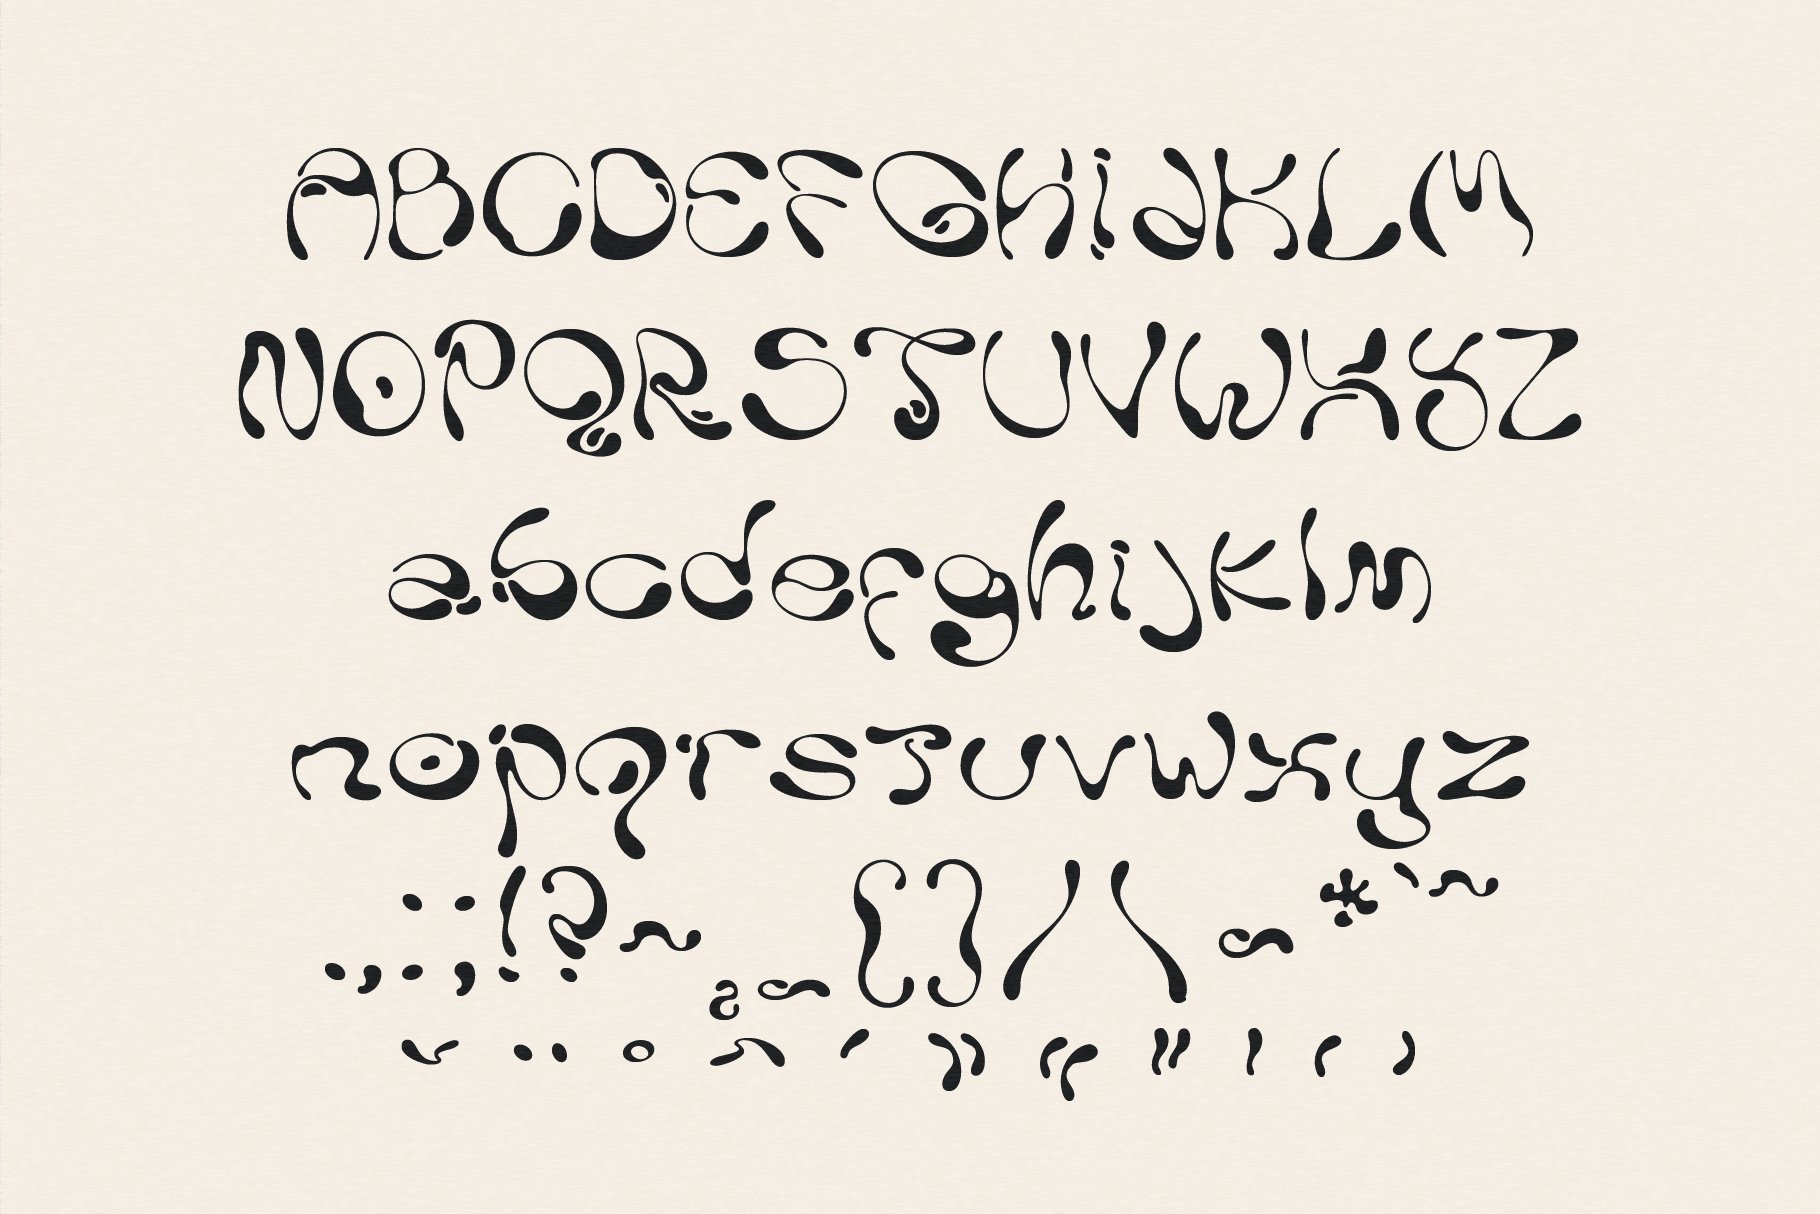 ABCDEFGHiJKLM
NOPQRSTUVWXYZ
abcdefghijklm
nopqrstuvwxyz
. , : ; ! ? ~ [ ] / \ * ` ~
ˇ ¨ ° ˆ ´ ” “ " ' ‘ ’